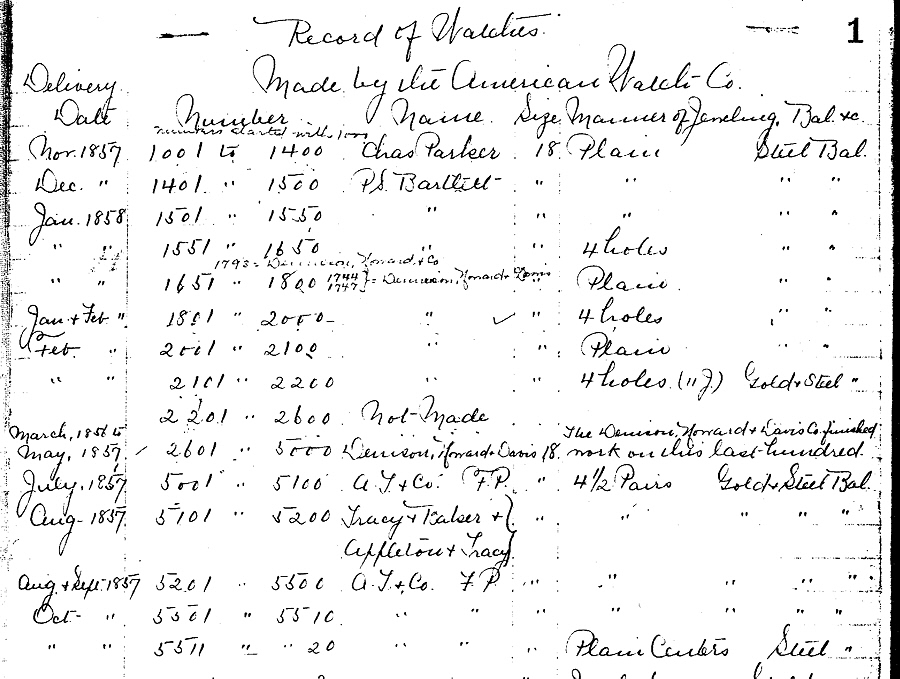 Record of Watches. 1
Made by the American Watch Co.
Delivery
Date Number Name. Size Manner of Jeweling, Bal. &c.
numbers started with 1001
Nov. 1857 1001 to 1400 Chas Parker 18 Plain Steel Bal.
Dec. " 1401 " 1500 P.S. Bartlett " " " "
Jan. 1858 1501 " 1550 " " " " "
" " 1551 " 1650 " " 4 holes " "
1793 = Dennison, Howard & Co
" " 1651 " 1800 1744 1747 } = Dennison, Howard & Davis " Plain " "
Jan & Feb " 1801 " 2000 " ✓ " 4 holes " "
Feb. " 2001 " 2100 " " Plain " "
" " 2101 " 2200 " " 4 holes (11 J) Gold & Steel "
2201 " 2600 Not Made
March, 1856 to The Denison, Howard & Davis Co. finished
May, 1857 ✓ 2601 " 5000 Denison, Howard & Davis 18. work on this last hundred.
July, 1857 5001 " 5100 A.T. & Co. F.P. " 4 1/2 Pairs Gold & Steel Bal.
Aug- 1857 5101 " 5200 Tracy & Baker & } " " " " "
Appleton & Tracy
Aug. & Sept. 1857 5201 " 5500 A.T. & Co. F.P. " " " " "
Oct- " 5501 " 5510 " " " " " " "
" " 5511 " " 20 " " " Plain Centers Steel "